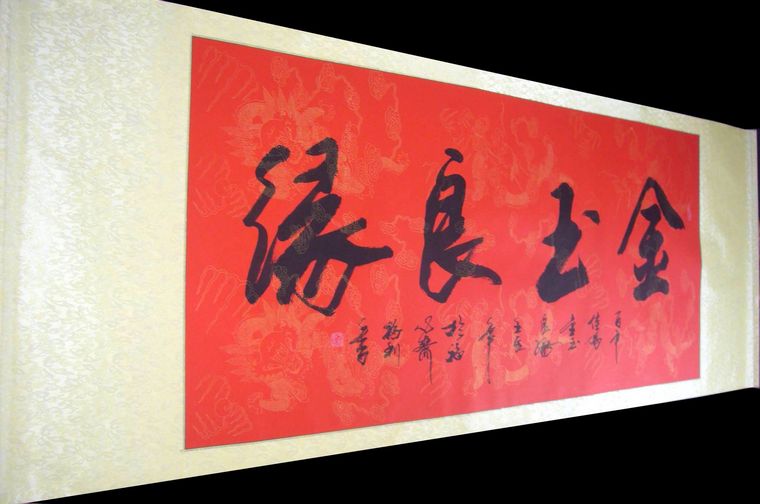 金玉良缘
百年
佳偶
金玉
良缘
壬辰
年